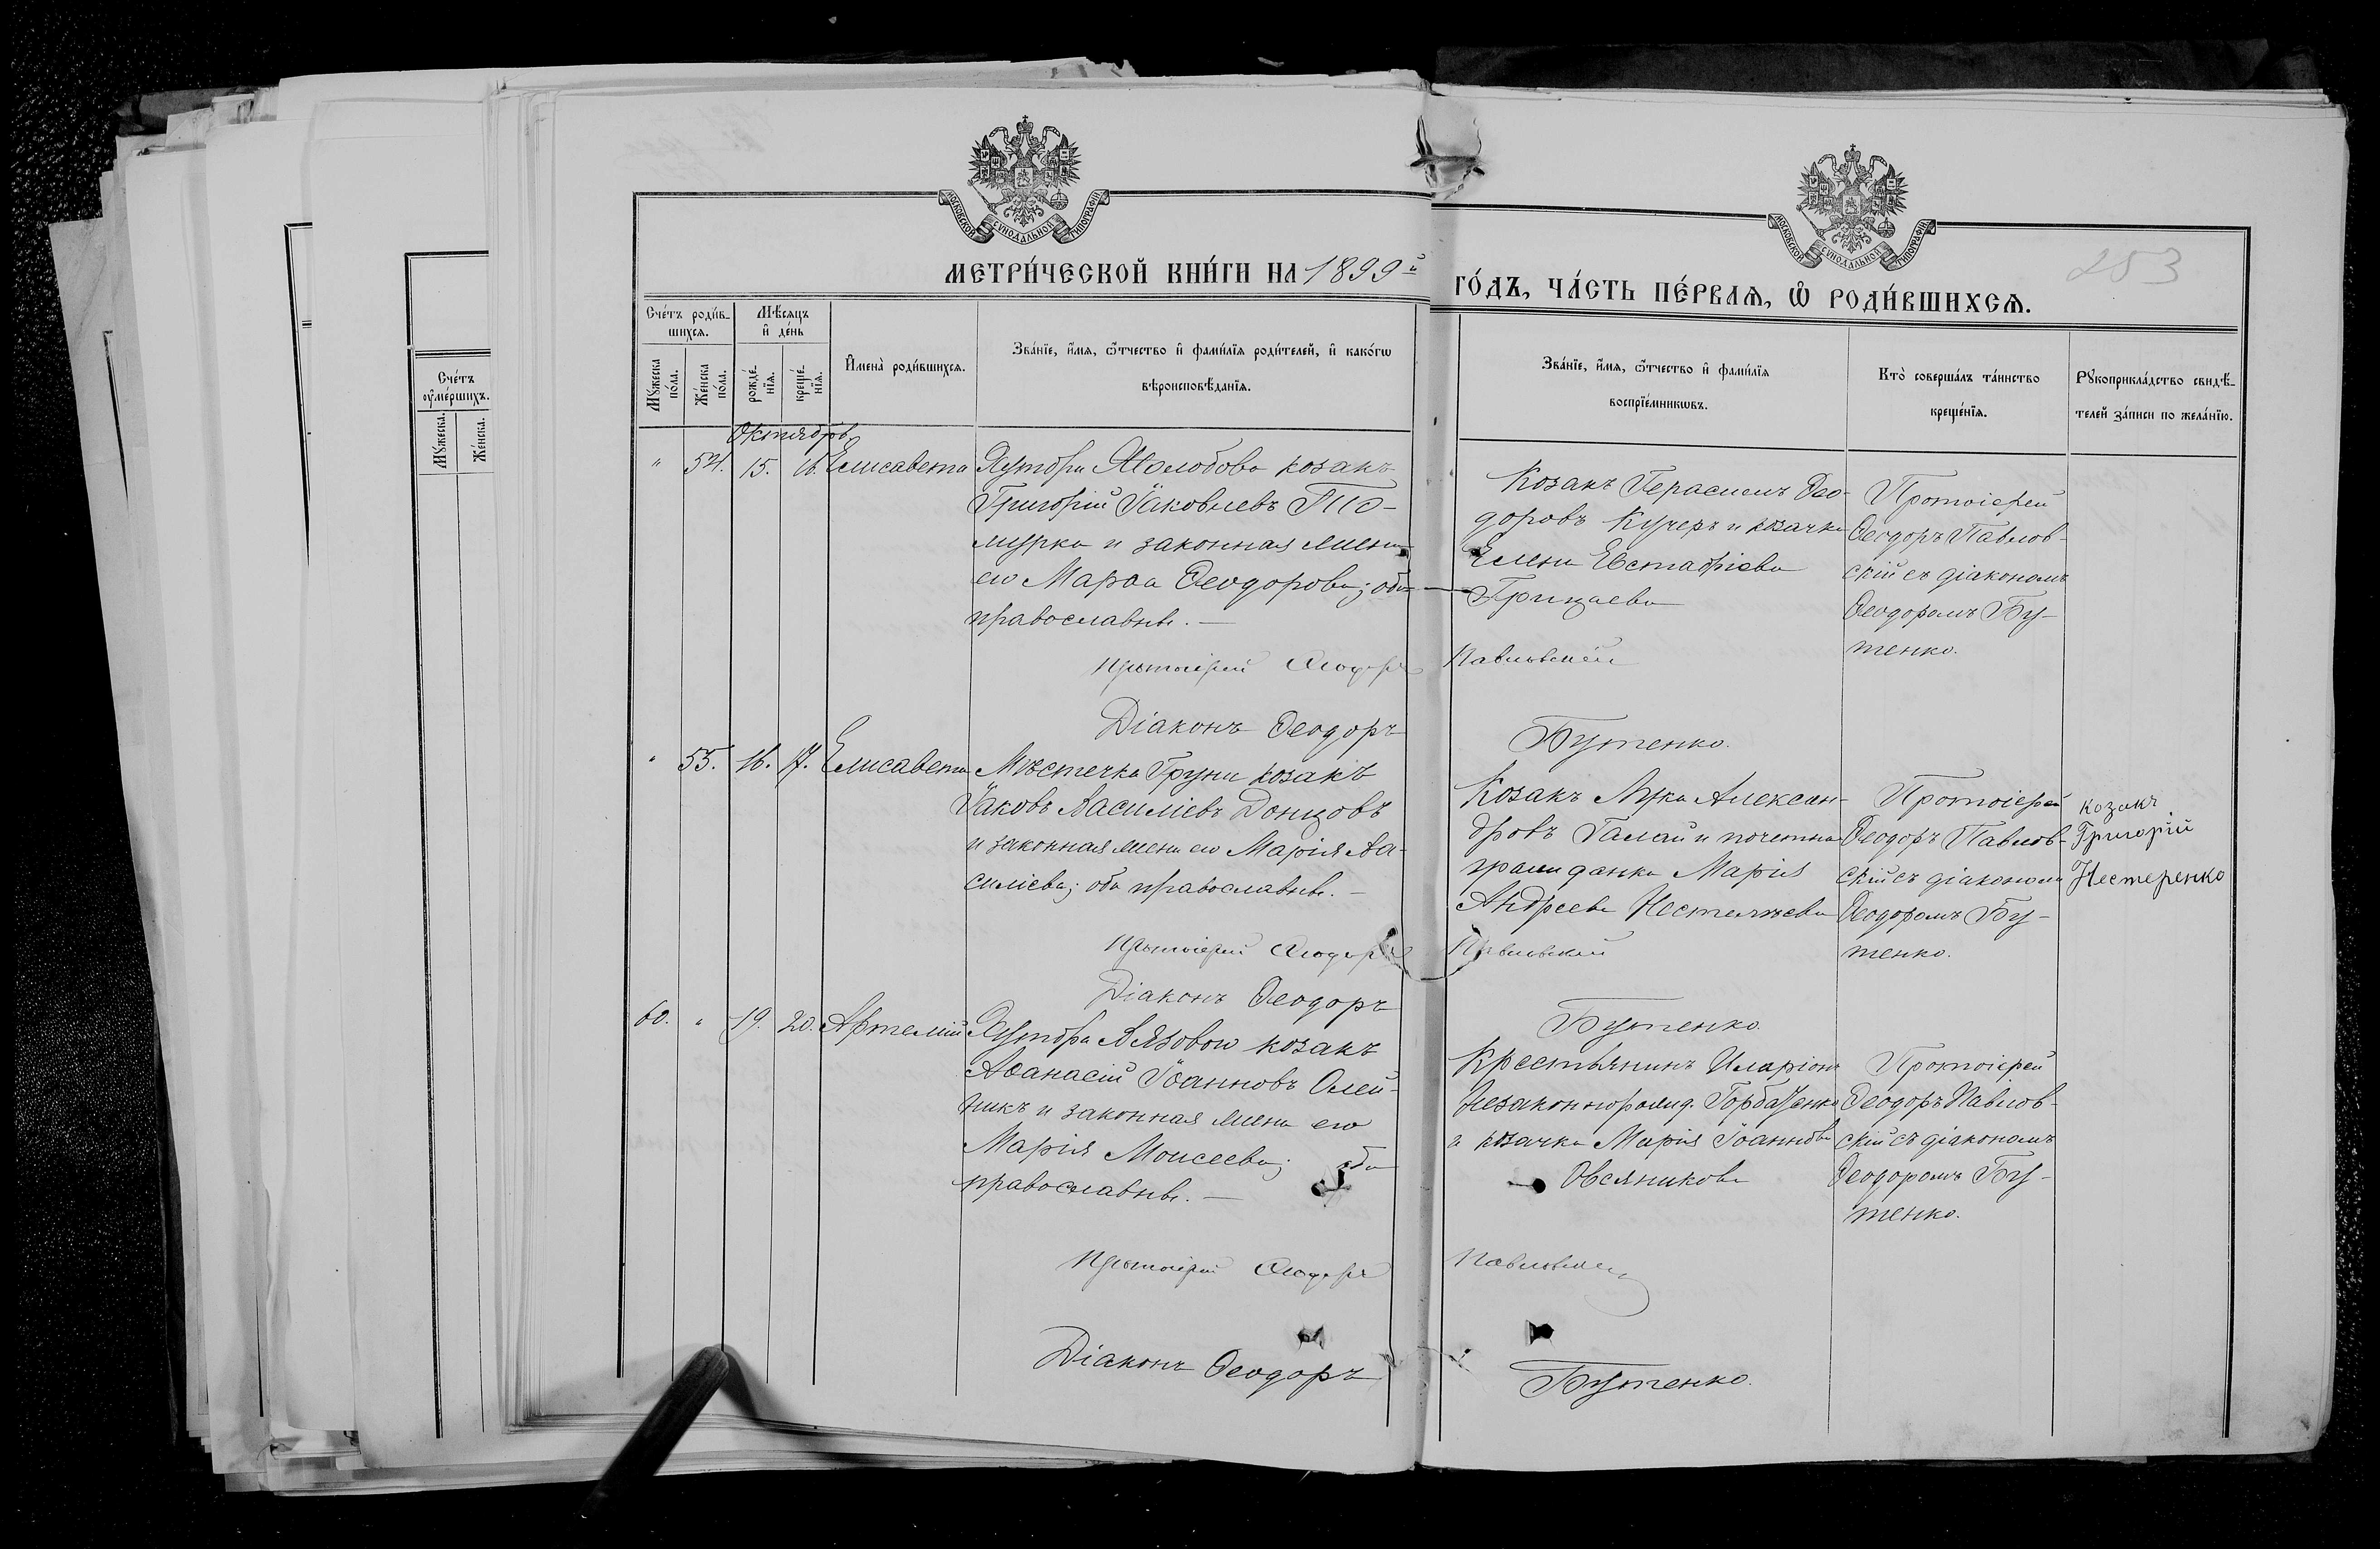 МОСКОВСКОЙ СѴНОДАЛЬНОЙ ТИПОГРАФІИ
МОСКОВСКОЙ СѴНОДАЛЬНОЙ ТИПОГРАФІИ
МЕТРИ́ЧЕСКОЙ КНИ́ГИ НА 1899й
ГО́ДЪ, ЧА́СТЬ ПЕ́РВАѦ, Ѽ РОДИ́ВШИХСѦ.
253
Сче́тъ
ᲂу҆ме́ршихъ.
Мꙋ́жеска.
Же́нска.
Сче́тъ роди́в-
шихсѧ.
Мꙋ́жеска
по́ла.
Же́нска
по́ла.
Мѣ́сѧцъ
и҆ де́нь
рожде́-
нїѧ.
креще́-
нїѧ.
И҆мена̀ роди́вшихсѧ.
Зва́нїе, и҆́мѧ, ѻ҆́тчество и҆ фами́лїѧ роди́телей, и҆ како́гѡ
вѣроисповѣ́данїѧ.
Зва́нїе, и҆́мѧ, ѻ҆́тчество и҆ фами́лїѧ
воспрїе́мникѡвъ.
Кто̀ соверша́лъ та́инство
креще́нїѧ.
Рꙋкоприкла́дство свидѣ́-
телей за́писи по жела́нїю.
Октябрь
" 54. 15. 16. Елисавета
Хутора Молобова козакъ
Григорій Іаковлевъ
и законная жена
его Марѳа Ѳеодорова; оба
православные. —
Козакъ Герасимъ Ѳео-
доровъ Кучеръ и козачка
Елена Евстафіева
Грицаева
Протоіерей
Ѳеодоръ Павлов-
скій съ діакономъ
Ѳеодоромъ Бу-
тенко.
Протоіерей Ѳеодоръ Павловскій
Діаконъ Ѳеодоръ Бутенко.
" 55. 16. 17. Елисавета
Мѣстечка Груни козакъ
Іаковъ Василіевъ Донцовъ
и законная жена его Марія Ва-
силіева; оба православные. —
Козакъ Лука Алексан-
дровъ Галай и почетная
гражданка Марія
Андреева
Протоіерей
Ѳеодоръ Павлов-
скій съ діакономъ
Ѳеодоромъ Бу-
тенко.
козакъ
Григорій
Нестеренко
Протоіерей Ѳеодоръ Павловскій
Діаконъ Ѳеодоръ Бутенко.
60. " 19. 20. Артемій
Хутора Вязового козакъ
Аѳанасій Іоанновъ Олей-
никъ и законная жена его
Марія Моисеева; оба
православные. —
Крестьянинъ Иларіонъ
незаконнорожд. Горбатенко
и козачка Марія Іоаннова
Овсяникова
Протоіерей
Ѳеодоръ Павлов-
скій съ діакономъ
Ѳеодоромъ Бу-
тенко.
Протоіерей Ѳеодоръ Павловскій
Діаконъ Ѳеодоръ Бутенко.